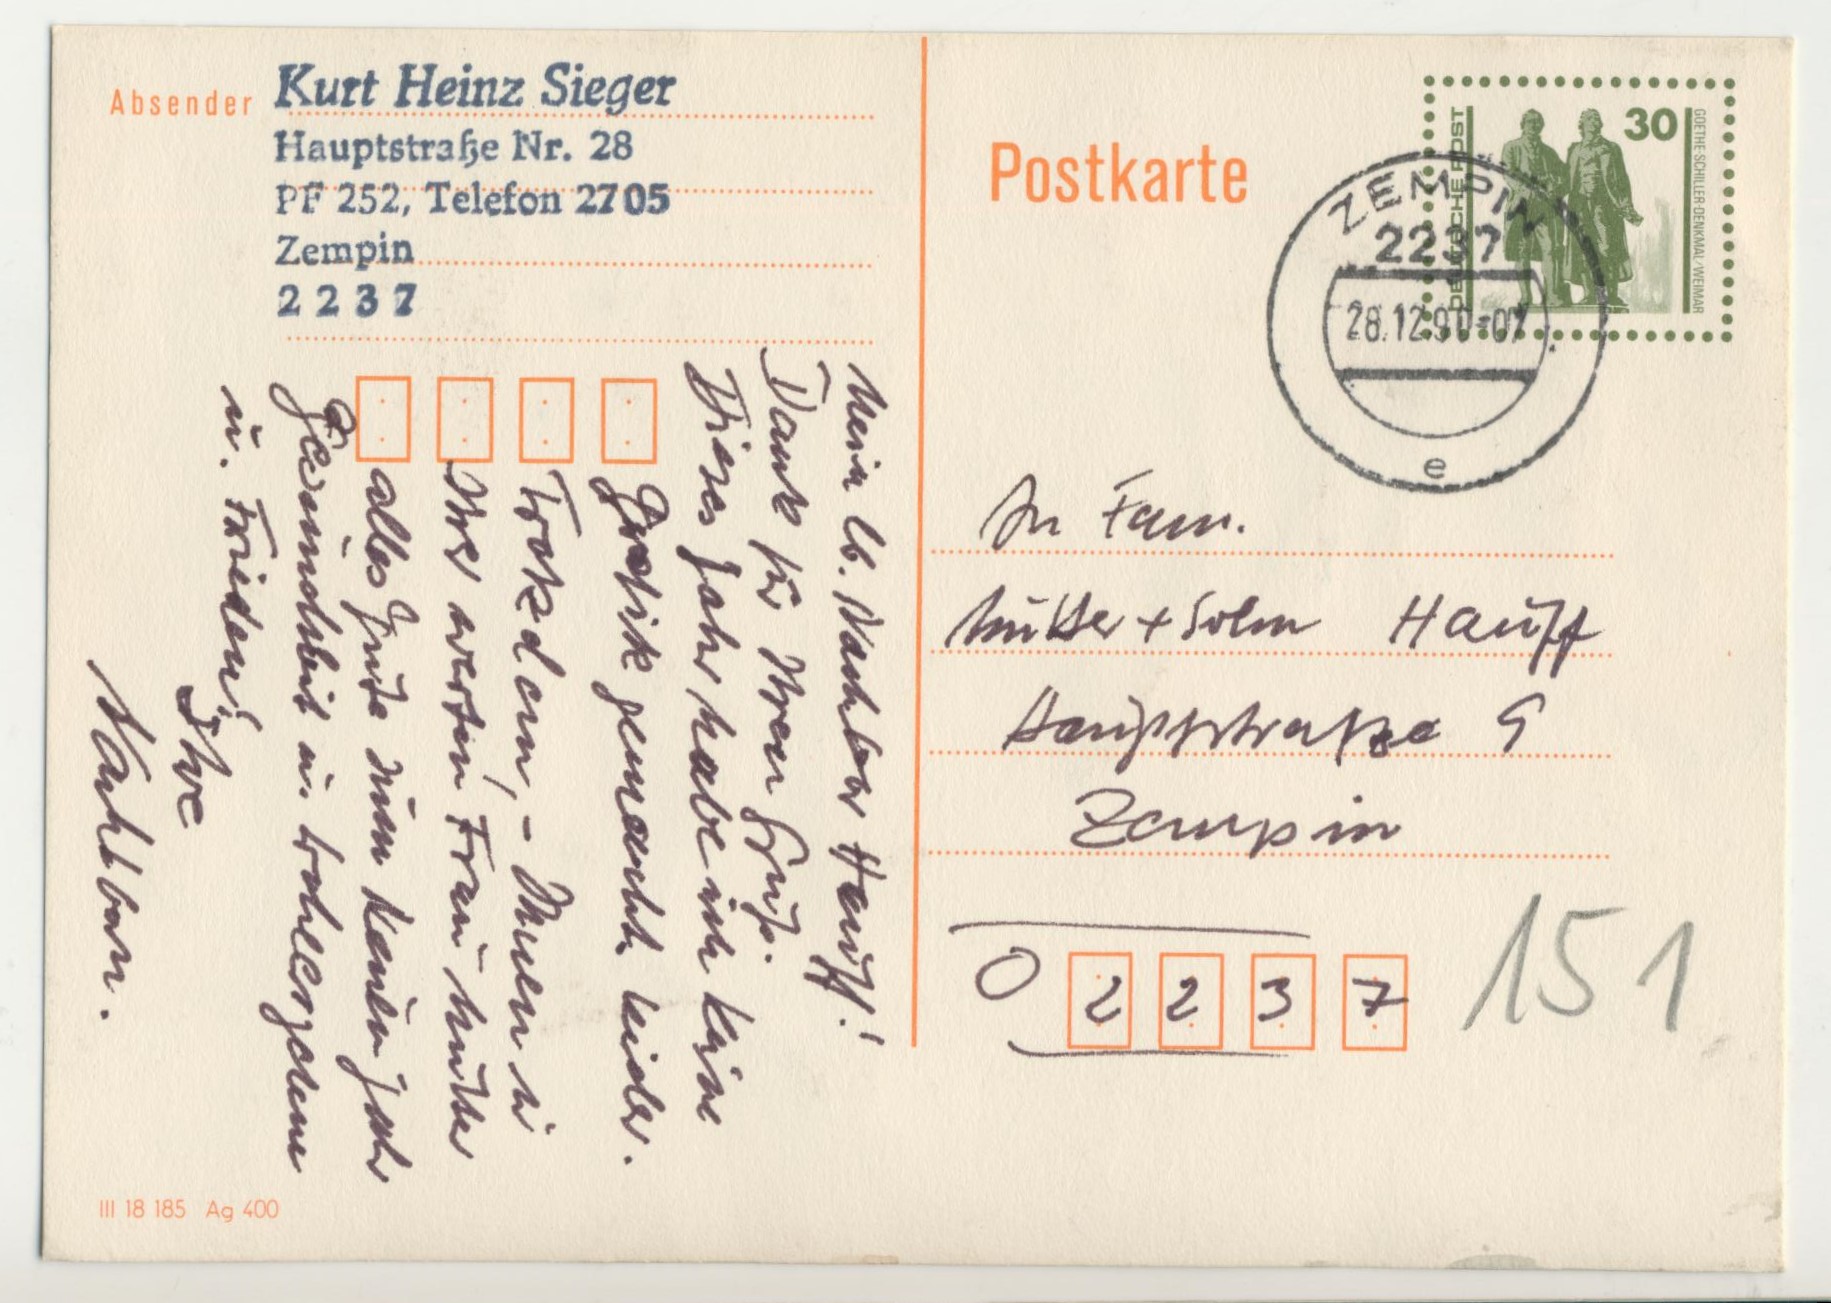 Absender
Kurt Heinz Sieger
Hauptstraße Nr. 28
PF 252, Telefon 2705
Zempin
2237
Postkarte
DEUTSCHE POST
30
GOETHE-SCHILLER-DENKMAL/WEIMAR
ZEMPIN
2237
28.12.90-07
e
An Fam.
Mutter + Sohn Hauff
Hauptstraße 9
Zempin
O 2237
151
Mein lb. Nachbar Hauff!
Dank für Ihren Gruß.
Dieses Jahr habe ich keine
Grafik gemacht leider.
Trotzdem, - Ihnen u
Ihrer werten Frau Mutter
alles Gute zum neuen Jahr
Gesundheit u. bohèrgenem
u. Frieden!
Ihre
Nachbarn.
III 18 185 Ag 400